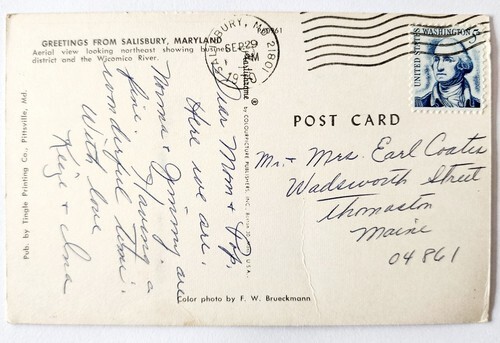 GREETINGS FROM SALISBURY, MARYLAND
Aerial view looking northeast showing business
district and the Wicomico River.
SALISBURY, MD. 21801
SEP 29
PM
1970
UNITED STATES
WASHINGTON
5
POST CARD
Dear Mom & Pop,
Here we are.
Norma & Jimmy are
fine. Having a
wonderful time.
With love
Mr. & Mrs. Earl Coates
Wadsworth Street
Thomaston
Maine
04861
Pub. by Tingle Printing Co., Pittsville, Md.
Plastichrome ® by COLOURPICTURE PUBLISHERS, INC.,
Color photo by F. W. Brueckmann